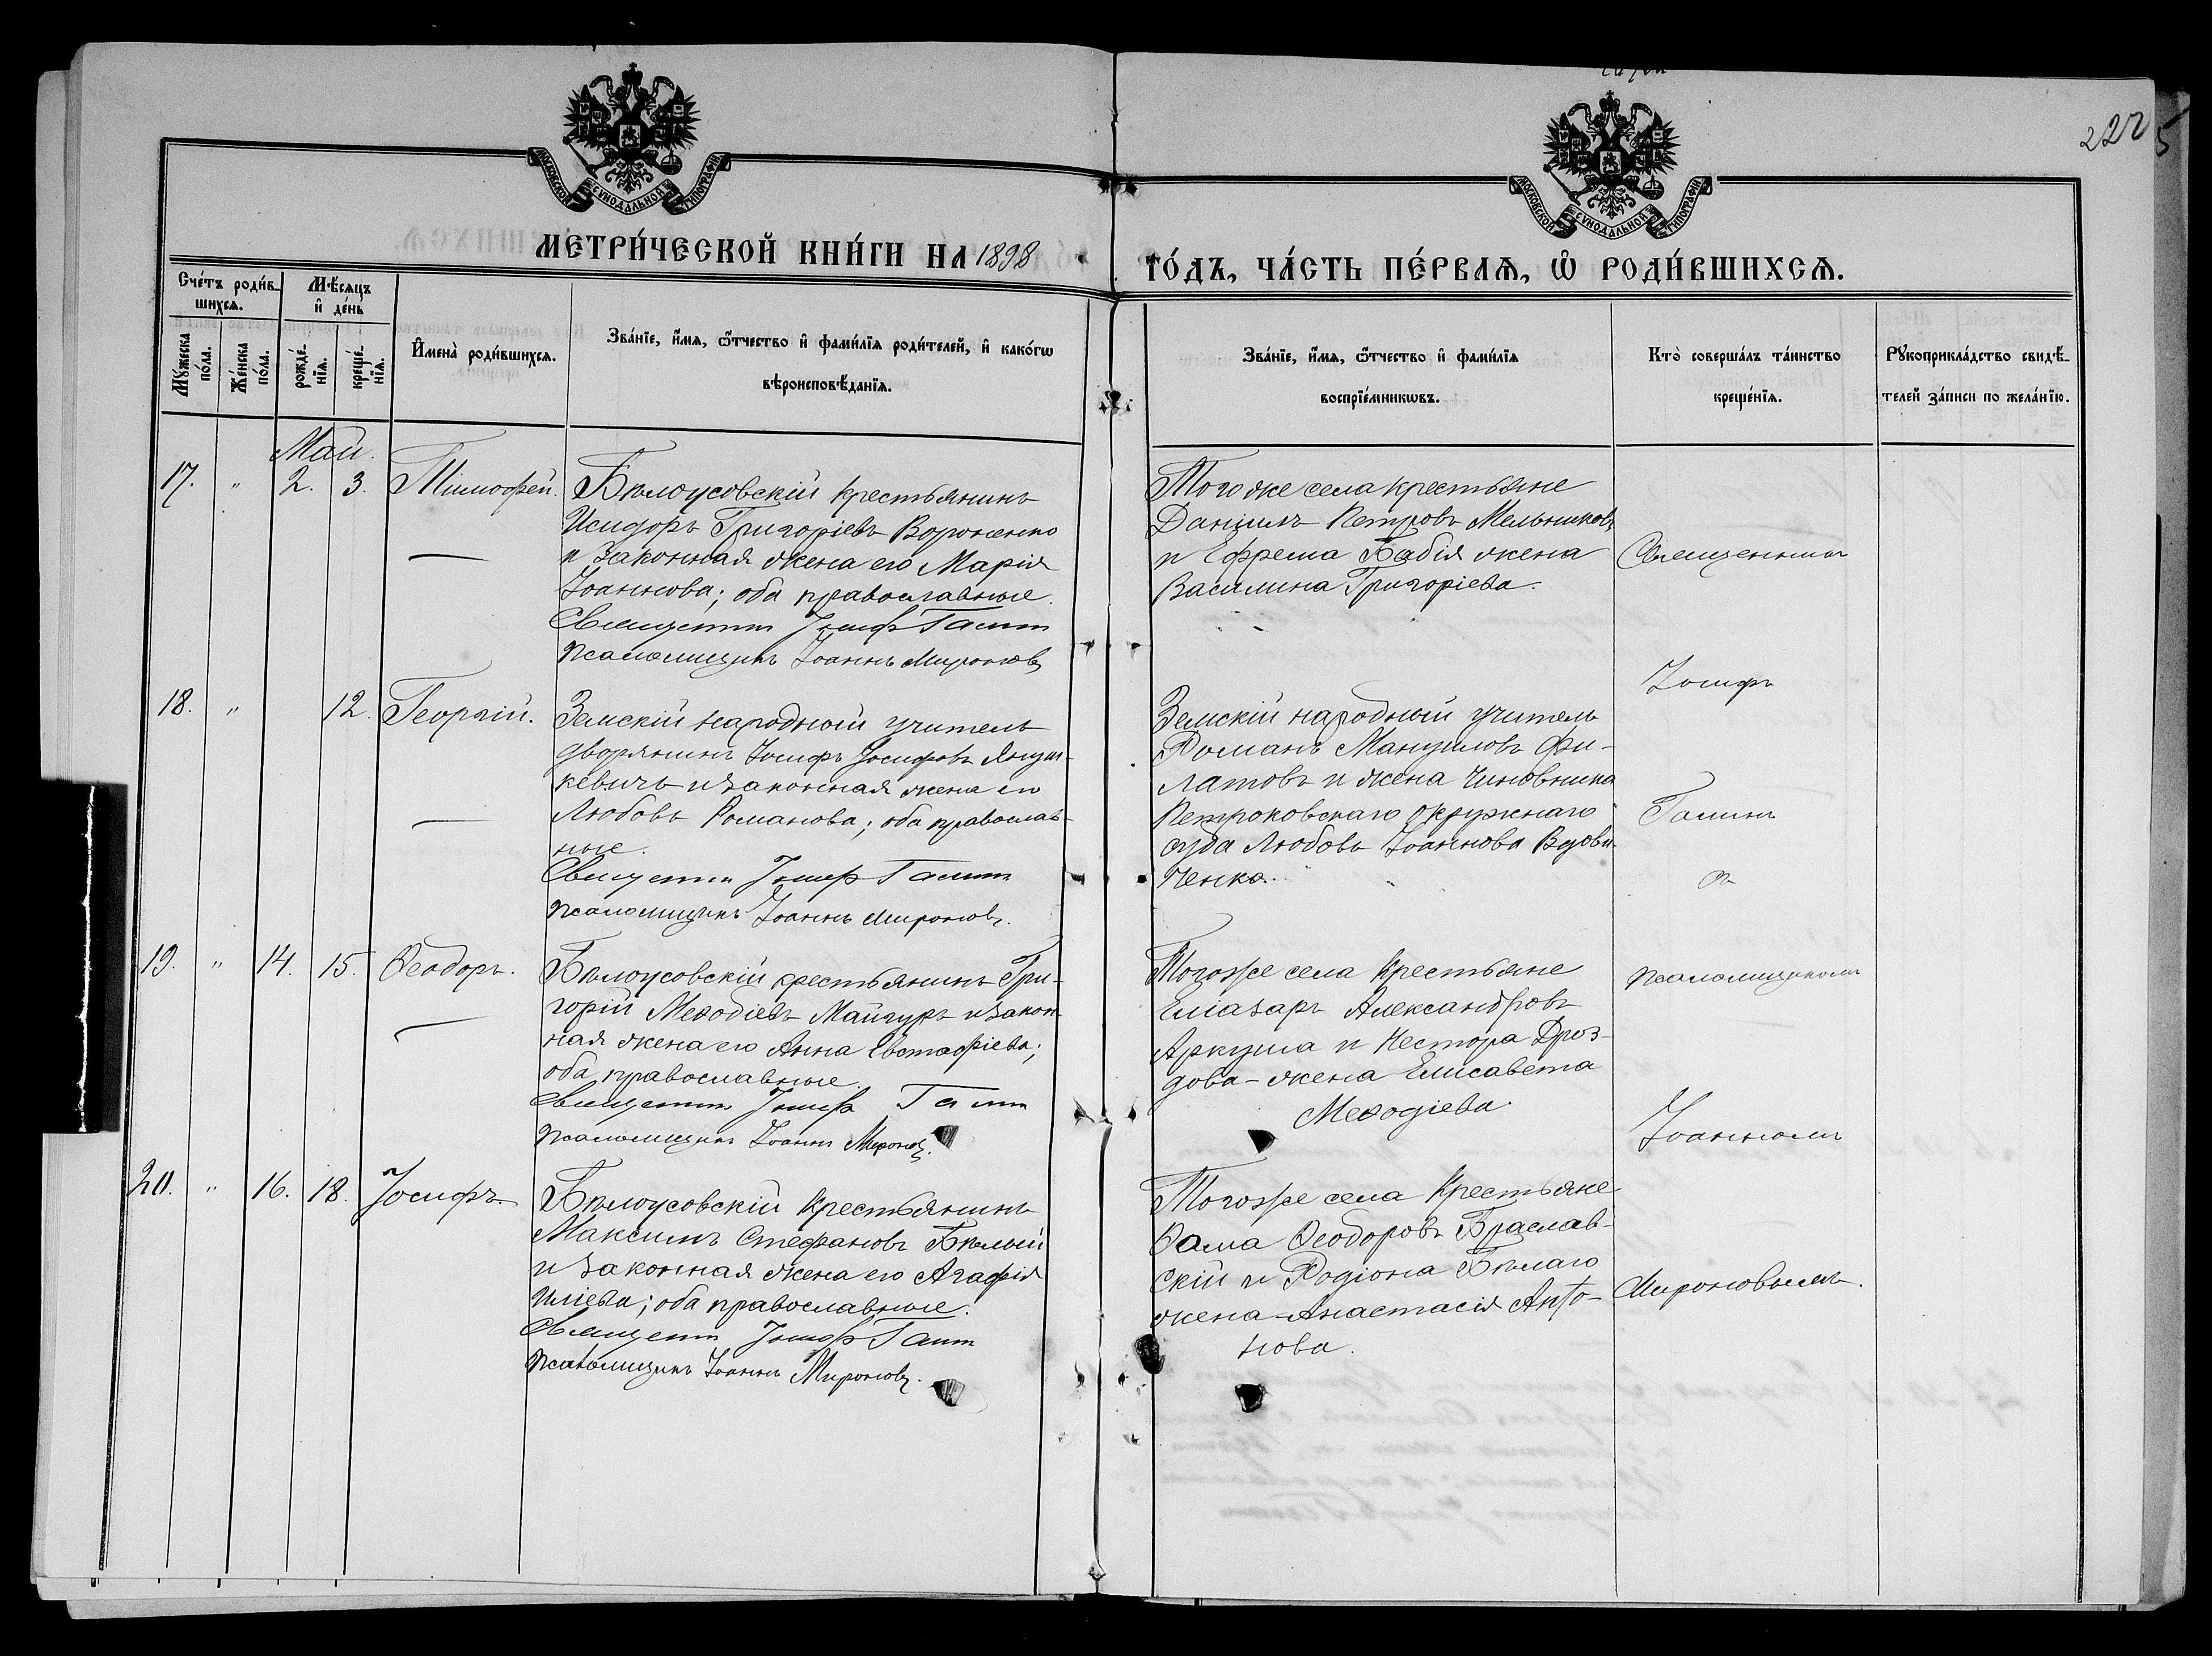 225
МЕТРИ́ЧЕСКОЙ КНИ́ГИ НА 1898
ГО́ДЪ, ЧА́СТЬ ПЕ́РВАѦ, Ѡ҆ РОДИ́ВШИХСѦ.
МОСКОВСКОЙ СѴНОДАЛЬНОЙ ТИПОГРАФІИ
МОСКОВСКОЙ СѴНОДАЛЬНОЙ ТИПОГРАФІИ
Сче́тъ роди́в-
шихсѧ.
Мѣ́сѧцъ
и҆ де́нь
Мꙋ́жеска
по́ла.
Же́нска
по́ла.
рожде́-
нїѧ.
креще́-
нїѧ.
И҆мена̀ роди́вшихсѧ.
Зва́нїе, и҆́мѧ, ѻ҆́тчество и҆ фами́лїѧ роди́телей, и҆ како́гѡ
вѣроисповѣ́данїѧ.
Зва́нїе, и҆́мѧ, ѻ҆́тчество и҆ фами́лїѧ
воспрїе́мникѡвъ.
Кто̀ соверша́лъ та́инство
креще́нїѧ.
Рꙋкоприкла́дство свидѣ́-
телей за́писи по жела́нїю.
Май.
17. " 2. 3. Тимофей.
Бѣлоусовскій крестьянинъ
Исидоръ Григоріевъ Вороненко
и законная жена его Марія
Іоаннова; оба православные.
Священникъ Іосифъ Галинъ
Псаломщикъ Іоаннъ Мироновъ
Тогоже села крестьяне
Даніилъ Петровъ Мельниковъ
и Ефрема Бабія жена
Василина Григоріева.
Священникъ
Іосифъ
18. " 12. Георгій.
Земскій народный учитель
дворянинъ Іосифъ Іосифовъ Януш-
кевичъ и законная жена его
Любовь Романова; оба православ-
ные.
Священникъ Іосифъ Галинъ
Псаломщикъ Іоаннъ Мироновъ.
Земскій народный учитель
Романъ Мануиловъ Фи-
латовъ и жена чиновника
Петроковскаго окружнаго
суда Любовь Іоаннова Вдови-
ченко.
Галинъ
съ
19. " 14. 15. Ѳеодоръ.
Бѣлоусовскій крестьянинъ Гри-
горій Меѳодіевъ Майгуръ и закон-
ная жена его Анна Евстафіева;
оба православные.
Священникъ Іосифъ Галинъ
Псаломщикъ Іоаннъ Мироновъ.
Тогоже села крестьяне
Еліазаръ Александровъ
Аркуша и Нестора Дроз-
дова - жена Елисавета
Меѳодіева.
Псаломщикомъ
Іоанномъ
20. " 16. 18. Іосифъ.
Бѣлоусовскій крестьянинъ
Максимъ Стефановъ Бѣлый
и законная жена его Агафія
Иліева; оба православные.
Священникъ Іосифъ Галинъ
Псаломщикъ Іоаннъ Мироновъ.
Тогоже села крестьяне
Ѳома Ѳеодоровъ Браслав-
скій и Родіона Бѣлаго
жена - Анастасія Анто-
нова.
Мироновымъ.